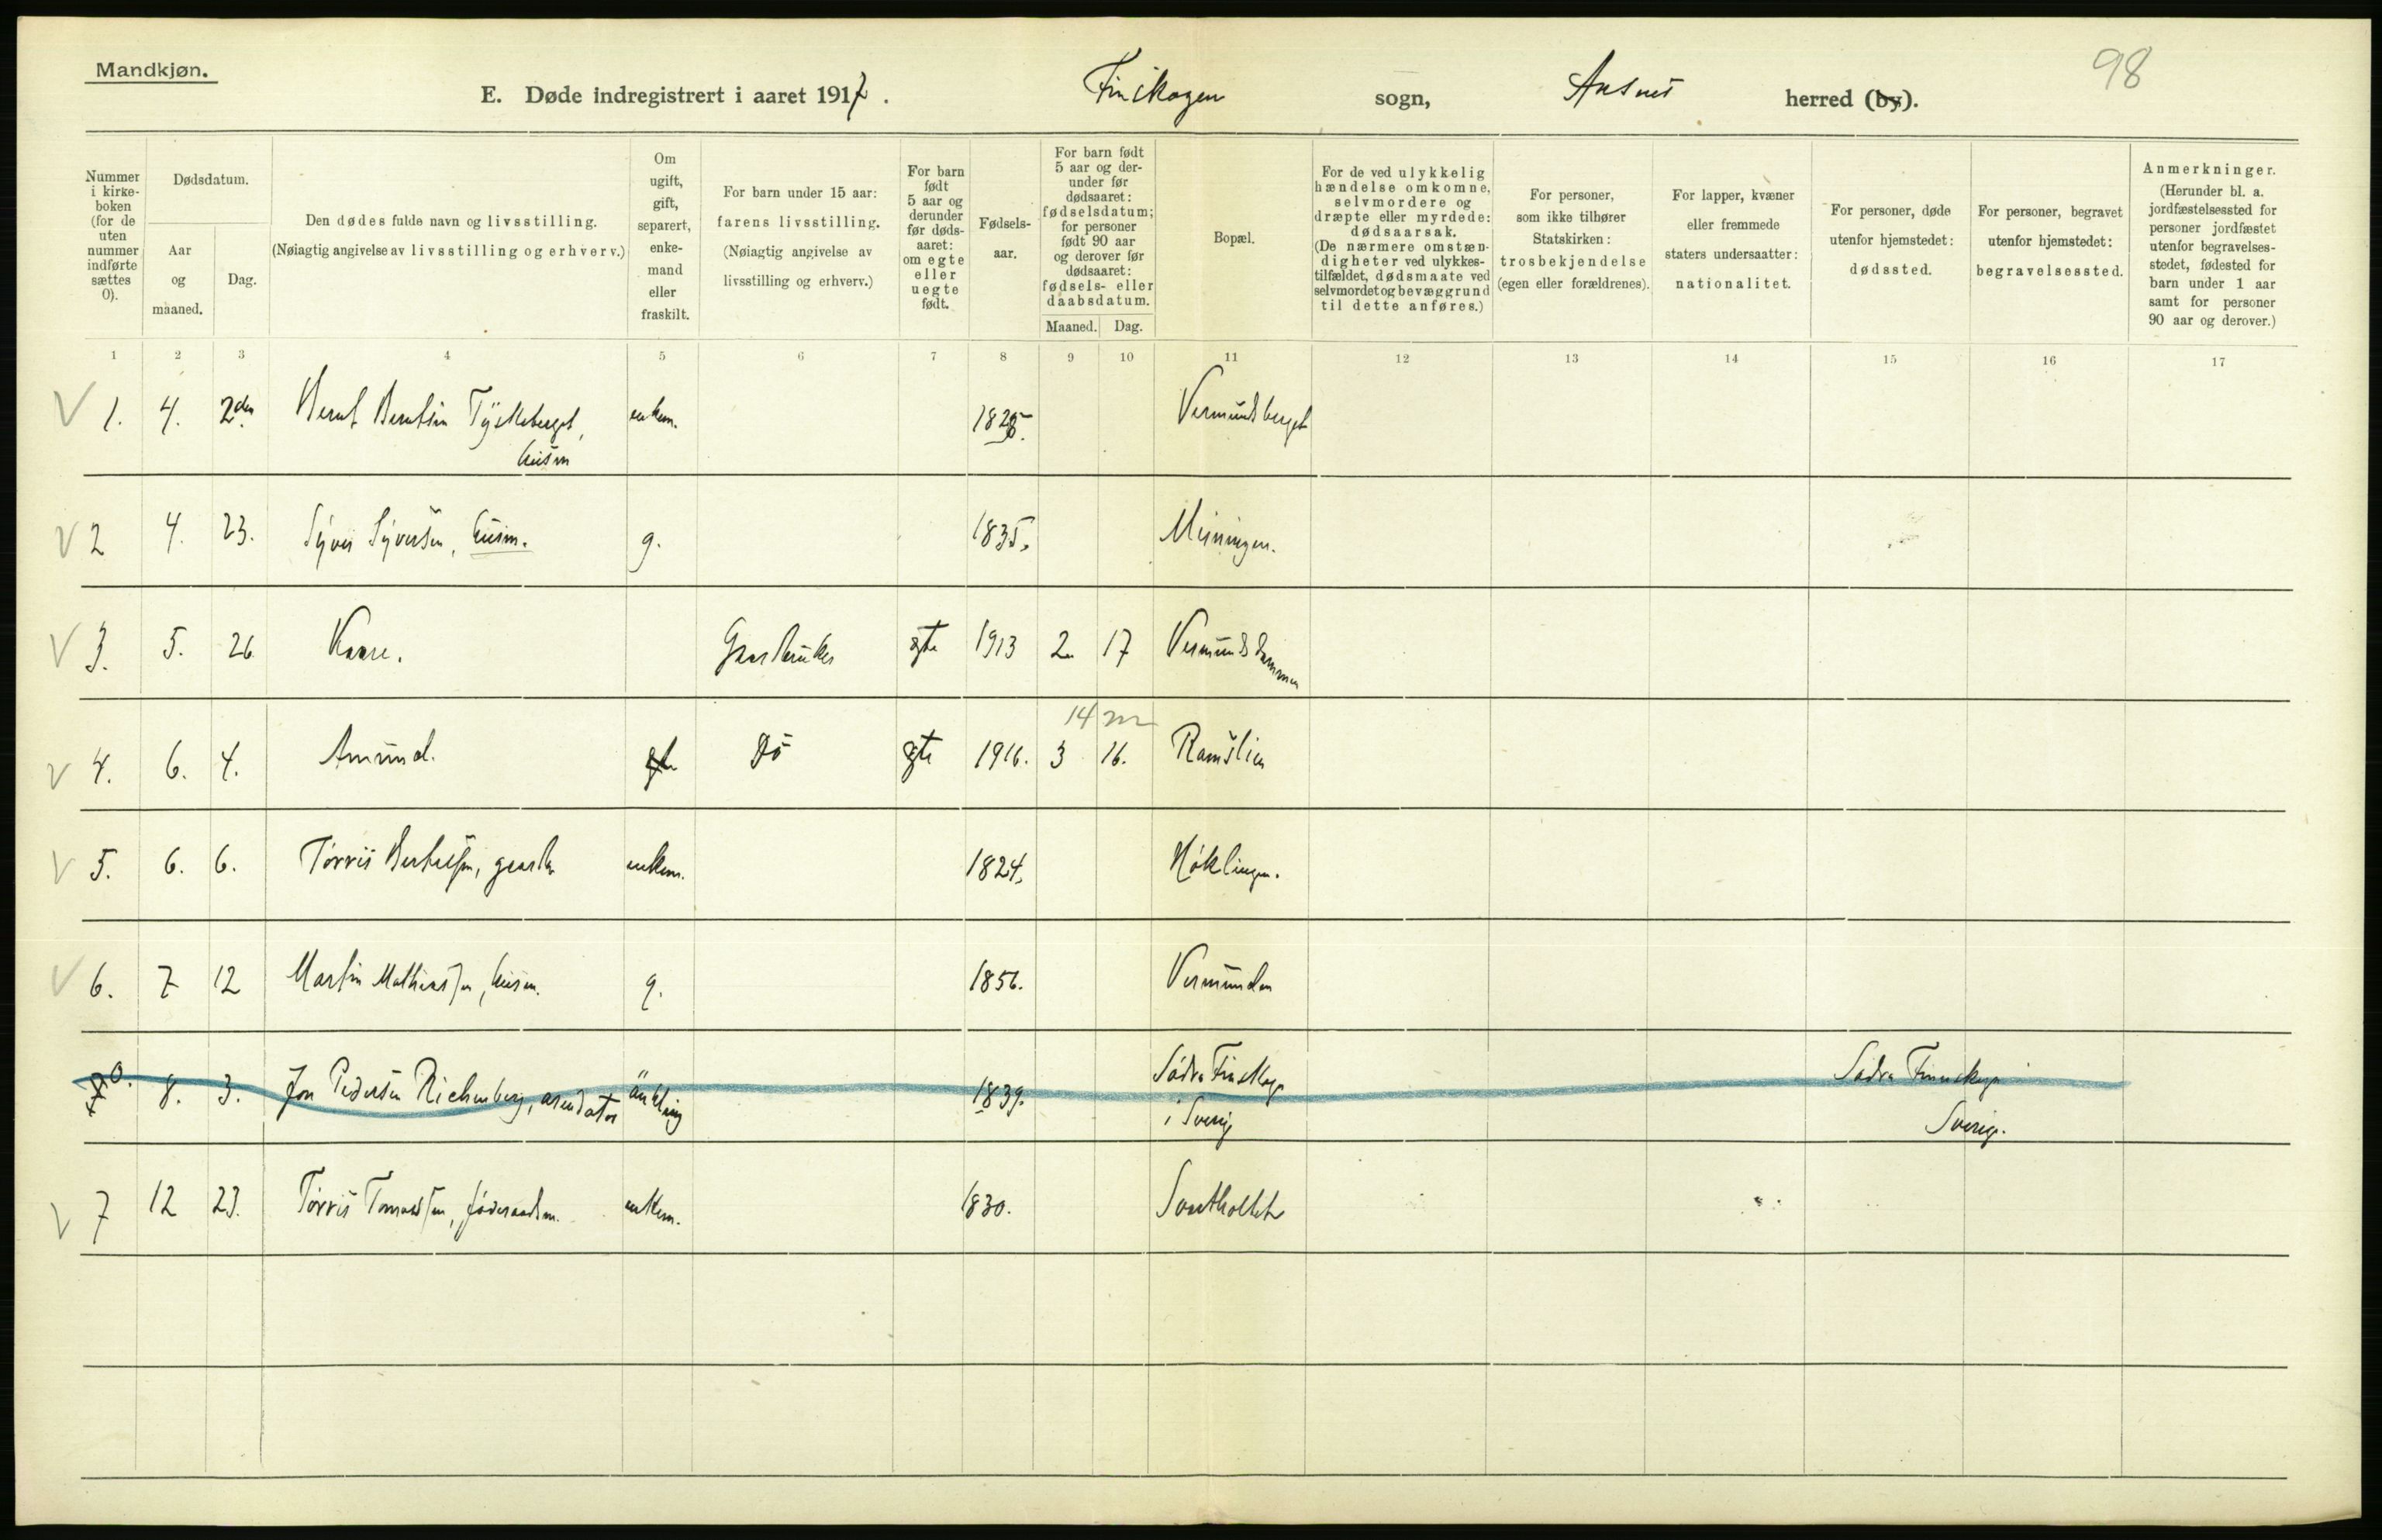 Mandkjøn.
98
E. Døde indregistrert i aaret 1917. Finskogen sogn, Aasnes herred (by).
Nummer i kirkeboken (for de uten nummer indførte sættes 0).
Dødsdatum.
Aar og maaned.
Dag.
Den dødes fulde navn og livsstilling.
(Nøiagtig angivelse av livsstilling og erhverv.)
Om ugift, gift, separert, enkemand eller fraskilt.
For barn under 15 aar: farens livsstilling.
(Nøiagtig angivelse av livsstilling og erhverv.)
For barn født 5 aar og derunder før dødsaaret: om egte eller uegte født.
Fødselsaar.
For barn født 5 aar og derunder før dødsaaret: fødselsdatum; for personer født 90 aar og derover før dødsaaret: fødsels- eller daabsdatum.
Maaned. Dag.
Bopæl.
For de ved ulykkelig hændelse omkomne, selvmordere og dræpte eller myrdede: dødsaarsak.
(De nærmere omstændigheter ved ulykkestilfældet, dødsmaate ved selvmordet og bevæggrund til dette anføres.)
For personer, som ikke tilhører Statskirken: trosbekjendelse (egen eller forældrenes).
For lapper, kvæner eller fremmede staters undersaatter: nationalitet.
For personer, døde utenfor hjemstedet: dødssted.
For personer, begravet utenfor hjemstedet: begravelsessted.
Anmerkninger.
(Herunder bl. a. jordfæstelsessted for personer jordfæstet utenfor begravelsesstedet, fødested for barn under 1 aar samt for personer 90 aar og derover.)
1 2 3 4 5 6 7 8 9 10 11 12 13 14 15 16 17
V 1. 4. 2den Bernt Berntsen Tyskeberget, enkem. Vermundsberget
husm
V 2 4. 23. Syver Syversen, husm. g. 1835.
V 3. 5. 26 Kaare. Gaardbruker egte 1913 2 17 Vermundsdammen
14 m
V 4. 6. 4. Amund. Do egte 1916. 3 16. Ramslien
V 5. 6. 6. Torris Bertelsen, gaardbr enkem. 1824. Nøklingen.
V 6. 7 12 Martin Mathiassen, husm. g. 1856. Vermunden
0. 8. 3. Jon Pedersen arendator änkling 1839. Södra Finskoga Södra Finnskoga
i Sverig Sverig.
V 7 12 23. Torris føderaadsm. enkem. 1830.